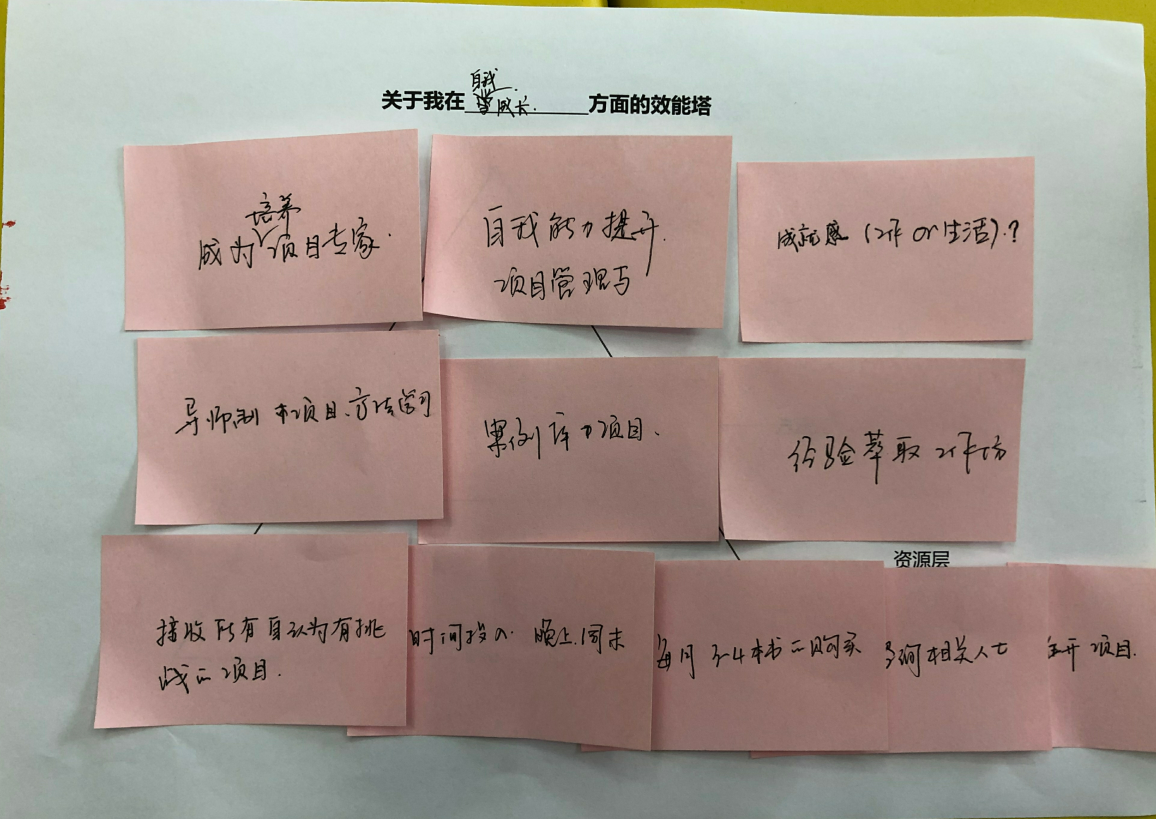 关于我在 自我成长. 方面的效能塔
培养
成为项目专家.
自我能力提升.
项目管理与
成就感 (工作 or 生活).?
导师制 本项目.方法学习
案例库 项目.
经验萃取 工作坊
接收所有自认为有挑
战的项目.
时间投入. 晚上.周末
每月 3-4本书的购买
询相关人士
项目.
资源层